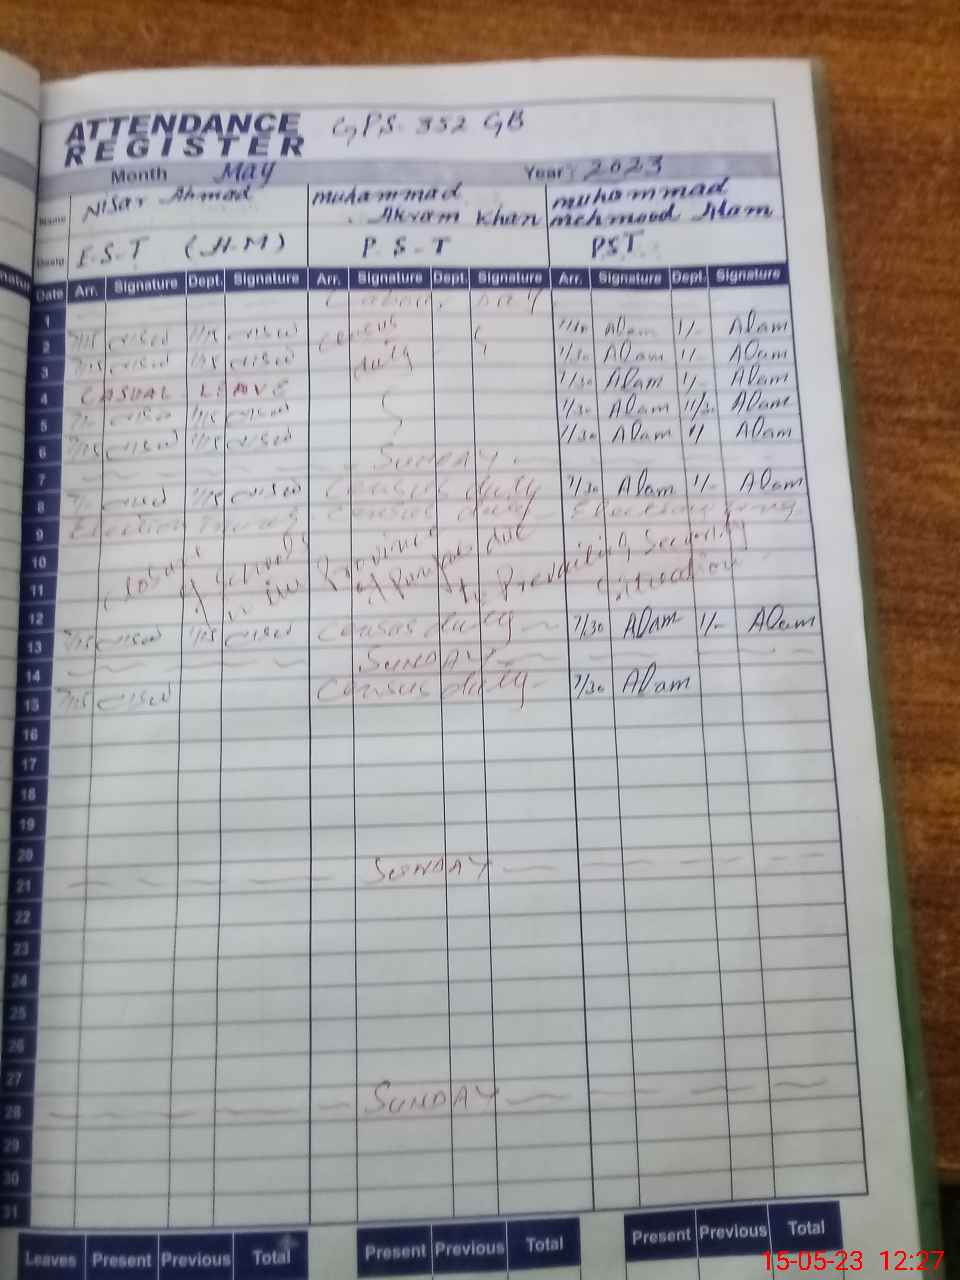 ATTENDANCE REGISTER GPS. 352 GB
Month May Year: 2023
Name Nisar Ahmad muhammad Akram Khan muhammad mehmood Alam
Desig E.S.T (H.M) P.S.T PST
Date Arr. Signature Dept. Signature Arr. Signature Dept. Signature Arr. Signature Dept. Signature
1 Labour Day
2 7/15 census 7/30 Alam 1/- Alam
3 7/15 duty 7/30 Alam 1/- Alam
4 CASUAL LEAVE 7/30 Alam 1/- Alam
5 7/30 Alam 11/30 Alam
6 7/15 7/30 Alam Alam
7 SUNDAY
8 Census duty 7/30 Alam 1/- Alam
9 Election Census duty
10 Closure of schools in the Province of Punjab due
11 to Prevailing Security situation
12
13 7/15 Census duty 7/30 Alam 1/- Alam
14 SUNDAY
15 7/15 Census duty 7/30 Alam
16
17
18
19
20
21 SUNDAY
22
23
24
25
26
27
28 SUNDAY
29
30
31
Leaves Present Previous Total Present Previous Total Present Previous Total
15-05-23 12:27